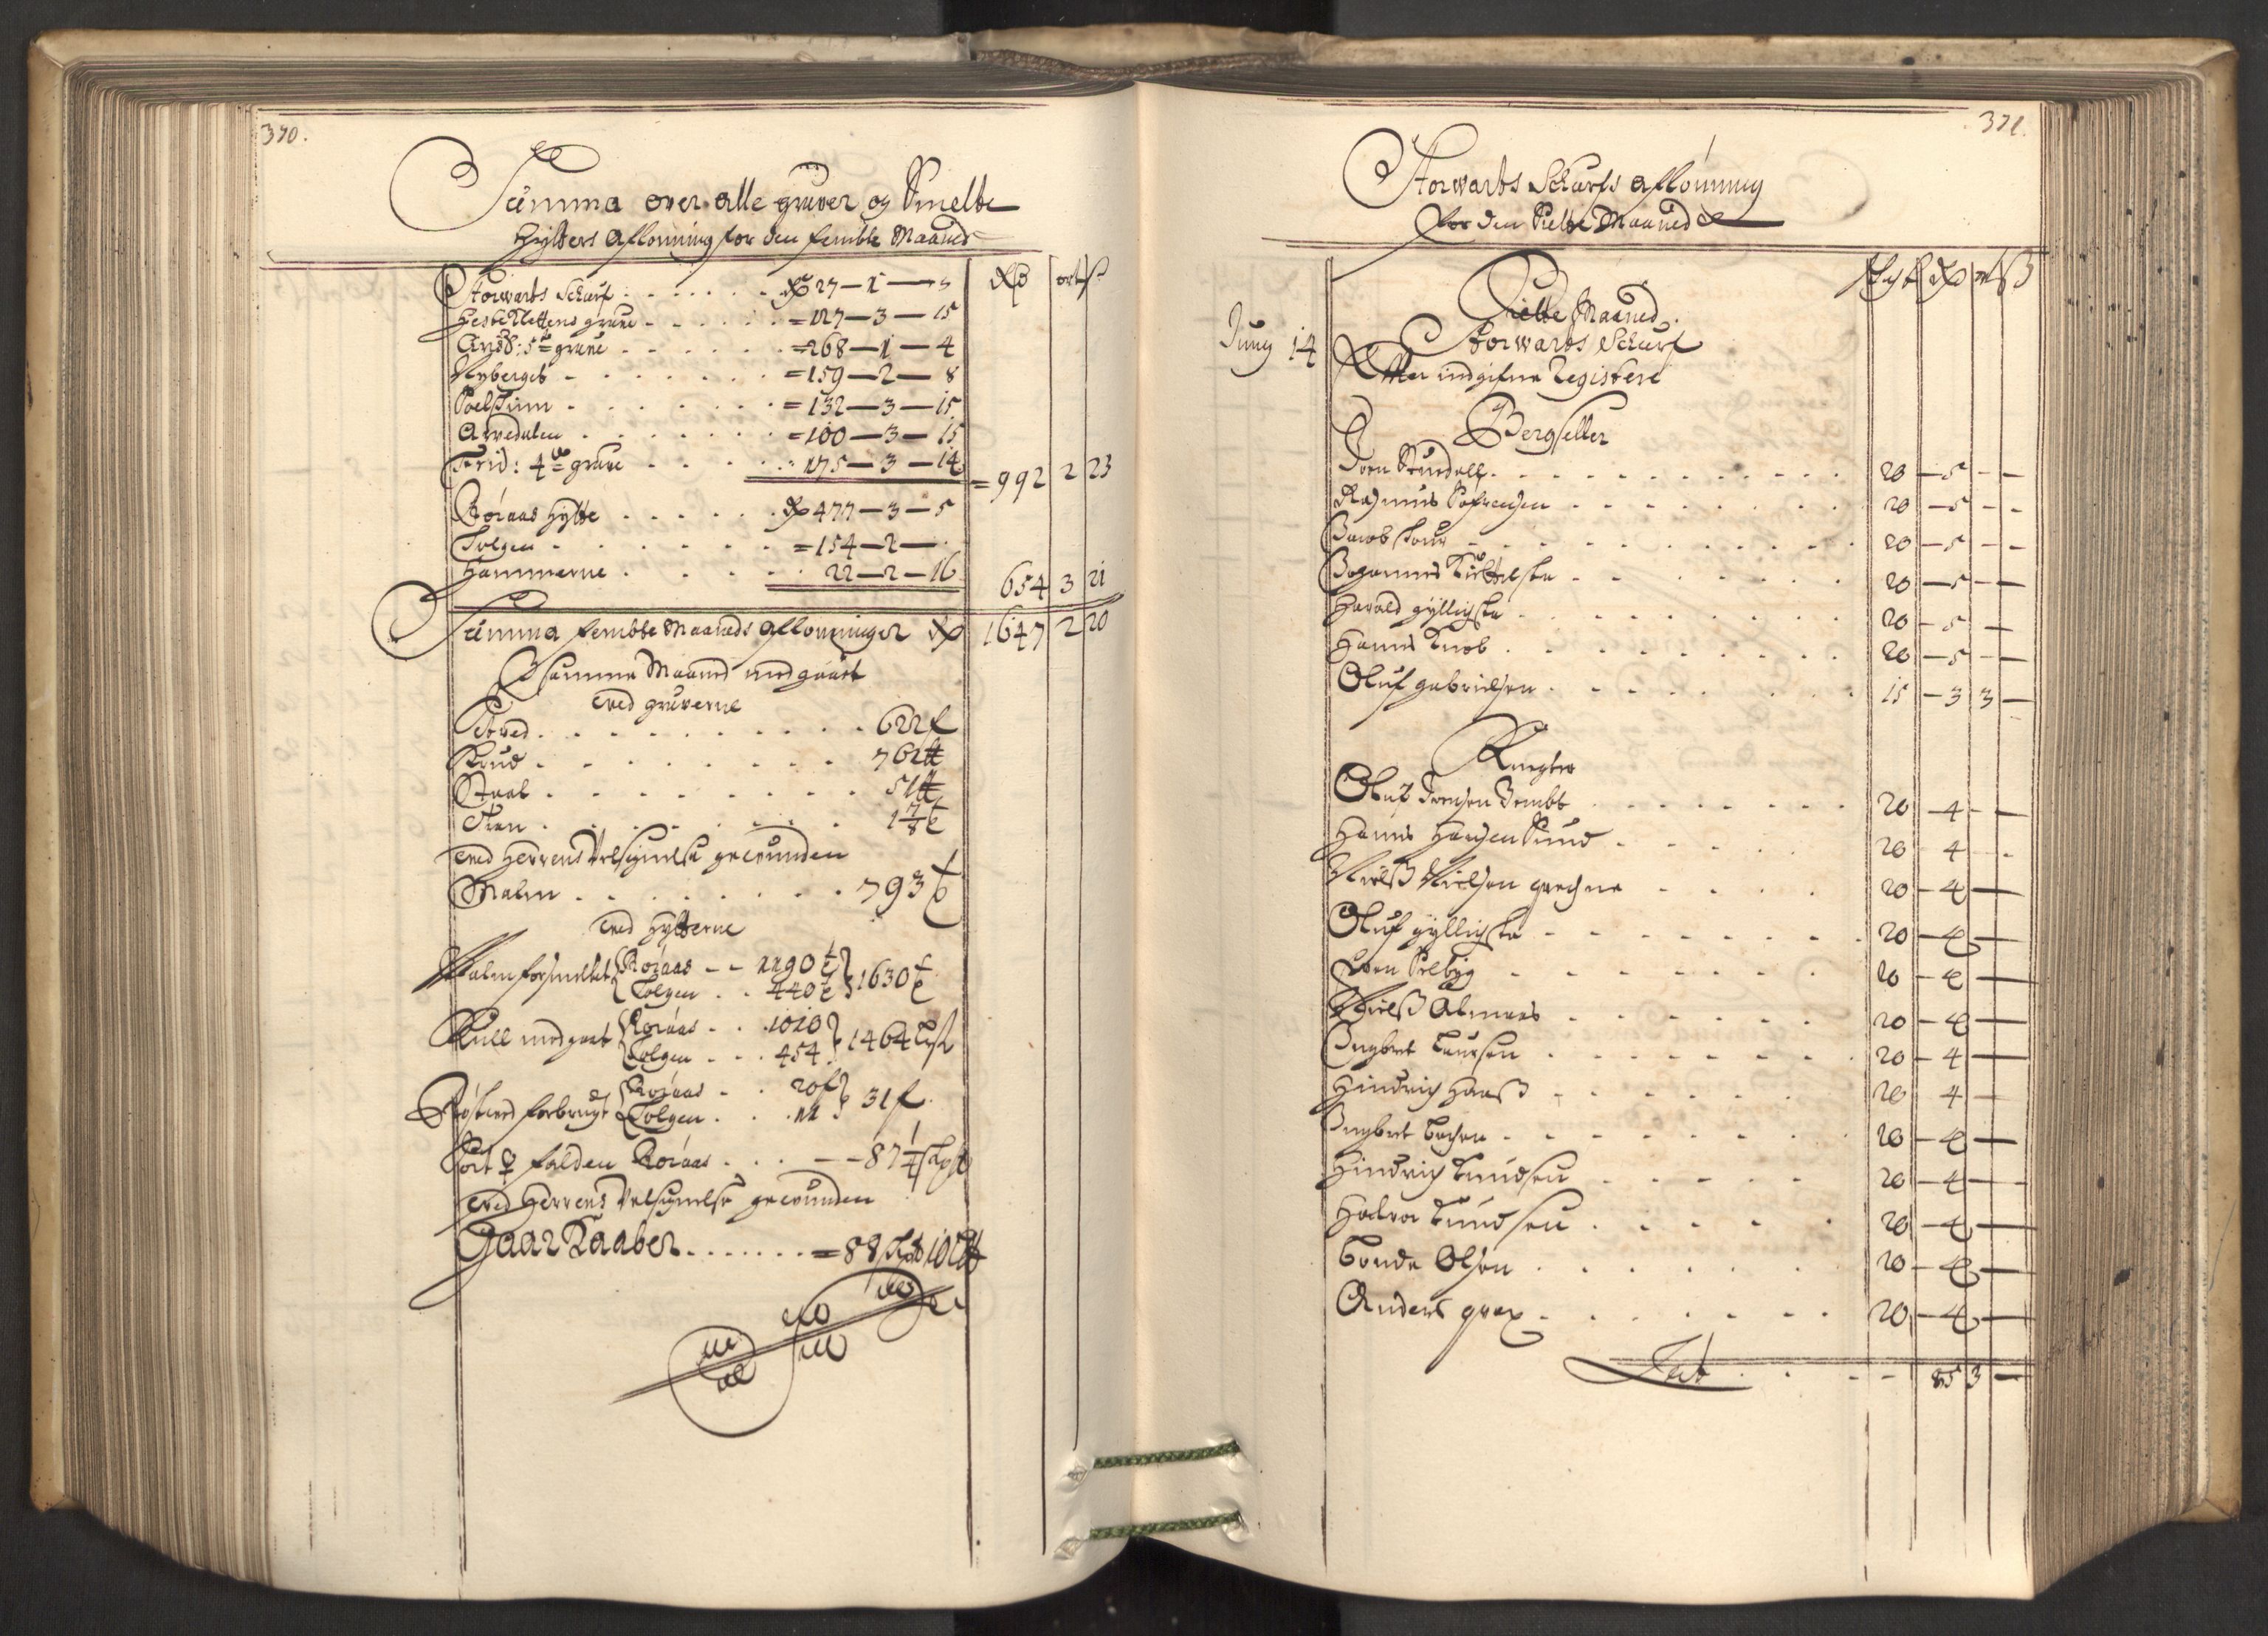 370.
Summa over alle gruver og Smelte
Hytters Aflönning for den femble Maaned
Rdr ort ß
Storwarts Schurf . . . . . . Rdr 27 — 1 — 
Hesteklettens gruve . . . . . = 127 — 3 — 15
Christ: 5te gruve . . . . . . = 268 — 1 — 4
Nyberget . . . . . . . = 159 — 2 — 8
. . . . . . . = 132 — 3 — 15
Arvedalen . . . . . . = 100 — 3 — 15
Frid: 4de gruve . . . . 175 — 3 — 14 = 992 2 23
Röraas Hytte . . . . . Rdr 477 — 3 — 5
Tolgen . . . . . . = 154 — 2 —
Hammerne . . . . 22 — 2 — 16 654 3 21
Summa fembte Maaneds Aflonninger Rdr 1647 2 20
I samme Maaned medgaaet
ved gruverne
Setved . . . . . . . . . 622 f
Krud . . . . . . . . 762 ℔
Staal . . . . . . . . 51 ℔
. . . . . . . 1 7/8
ved Herrens Velsignelse gewunden
Malm . . . . . . . . 793
ved Hytterne
Malm forsmeltet Röraas - - 1190
Tolgen . . 440 1630
Kull medgaat Röraas - . . 1010
Tolgen . . . 454 1464 Lest
Röstved forbrugt Röraas - . 20 f
Tolgen . . . 11 31 f.
Sort ♀ falden Röraas . . . - - 87 1/4
ved Herrens Velsignelse gewunden
Gaar Kaaber . . . . . . . = 88 10
371.
Storwarts Schurfs Aflönning
for den Siette Maaned
Rdr ort ß
Siette Maaned.
Juny 14 Storwarts Schurf
Efter indgifne Registere
Bergseller
Joen Stuedall . . . . . . 20 — 5 - -
Rasmus Sofrensen . . . . . . 20 — 5 - -
Jacob . . . . . . 20 — 5 - -
Johannes . . . . . . 20 — 5 — —
Harald Gyllischa . . . . . . 20 — 5 —
Hanns Knob . . . . . . 20 — 5 — —
Oluf Gabrielsen . . . . . . 15 — 3 3 —
Knegter
Oluf Joensen . . . . . . 20 — 4 — —
Hanns Hansen Sund . . . . . 20 4 - .
Nielß Nielsen . . . . 20 — 4 —
Oluf Gyllischa - - - - - - 20 — 4 —
Joen Selbyg - - - - - - 20 — 4 —
Nielß Almaas . . . . . . 20 — 4 —
Ingbret Laursen . . . . . . 20 — 4 —
Hindrich Haaß . . . . . . 20 4 —
Ingbret . . . . . . 20 — 4 —
Hindrich Knudsen . . . . . 20 — 4 —
Halvor Knudsen . . . . . 20 — 4 —
Olsen . . . . . . 20 — 4 —
Anders . . . . . . 20 — 4 —
Lat . . . - - 85 3 —